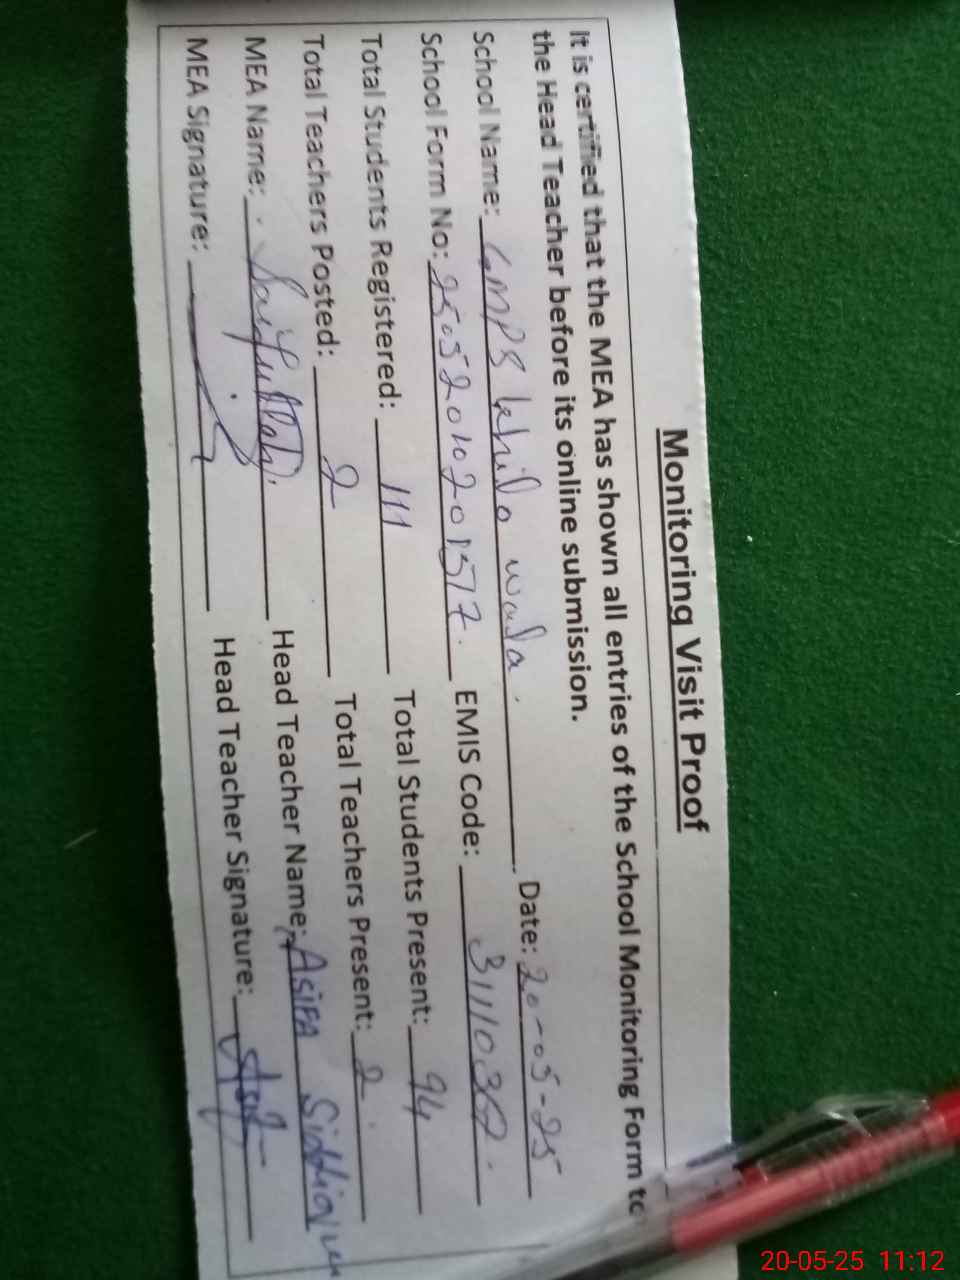 Monitoring Visit Proof
It is certified that the MEA has shown all entries of the School Monitoring Form to
the Head Teacher before its online submission.
School Name: GMPS khilo wala. Date: 20-05-25
School Form No: EMIS Code:
Total Students Registered: 111 Total Students Present: 94
Total Teachers Posted: 2 Total Teachers Present: 2
MEA Name: Saifullah. Head Teacher Name: ASIFA
MEA Signature: Head Teacher Signature:
20-05-25 11:12